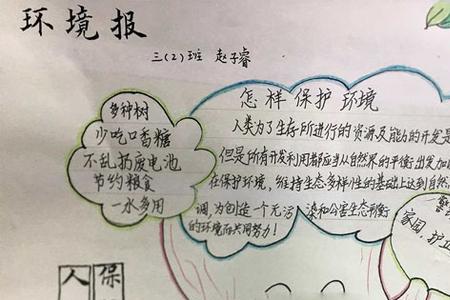 环境报
三(2)班 赵子睿
多种树
少吃口香糖
不乱扔废电池
节约粮食
一水多用
怎样保护环境
人类为了生存所进行的资源及能力的开发是
但是所有开发利用都应当从自然界的平衡出发加以
在保护环境,维持生态多样性的基础上达到自然
调,为创造一个无污 染和公害生态平衡
的环境而共同努力!
家园,护卫
保
人